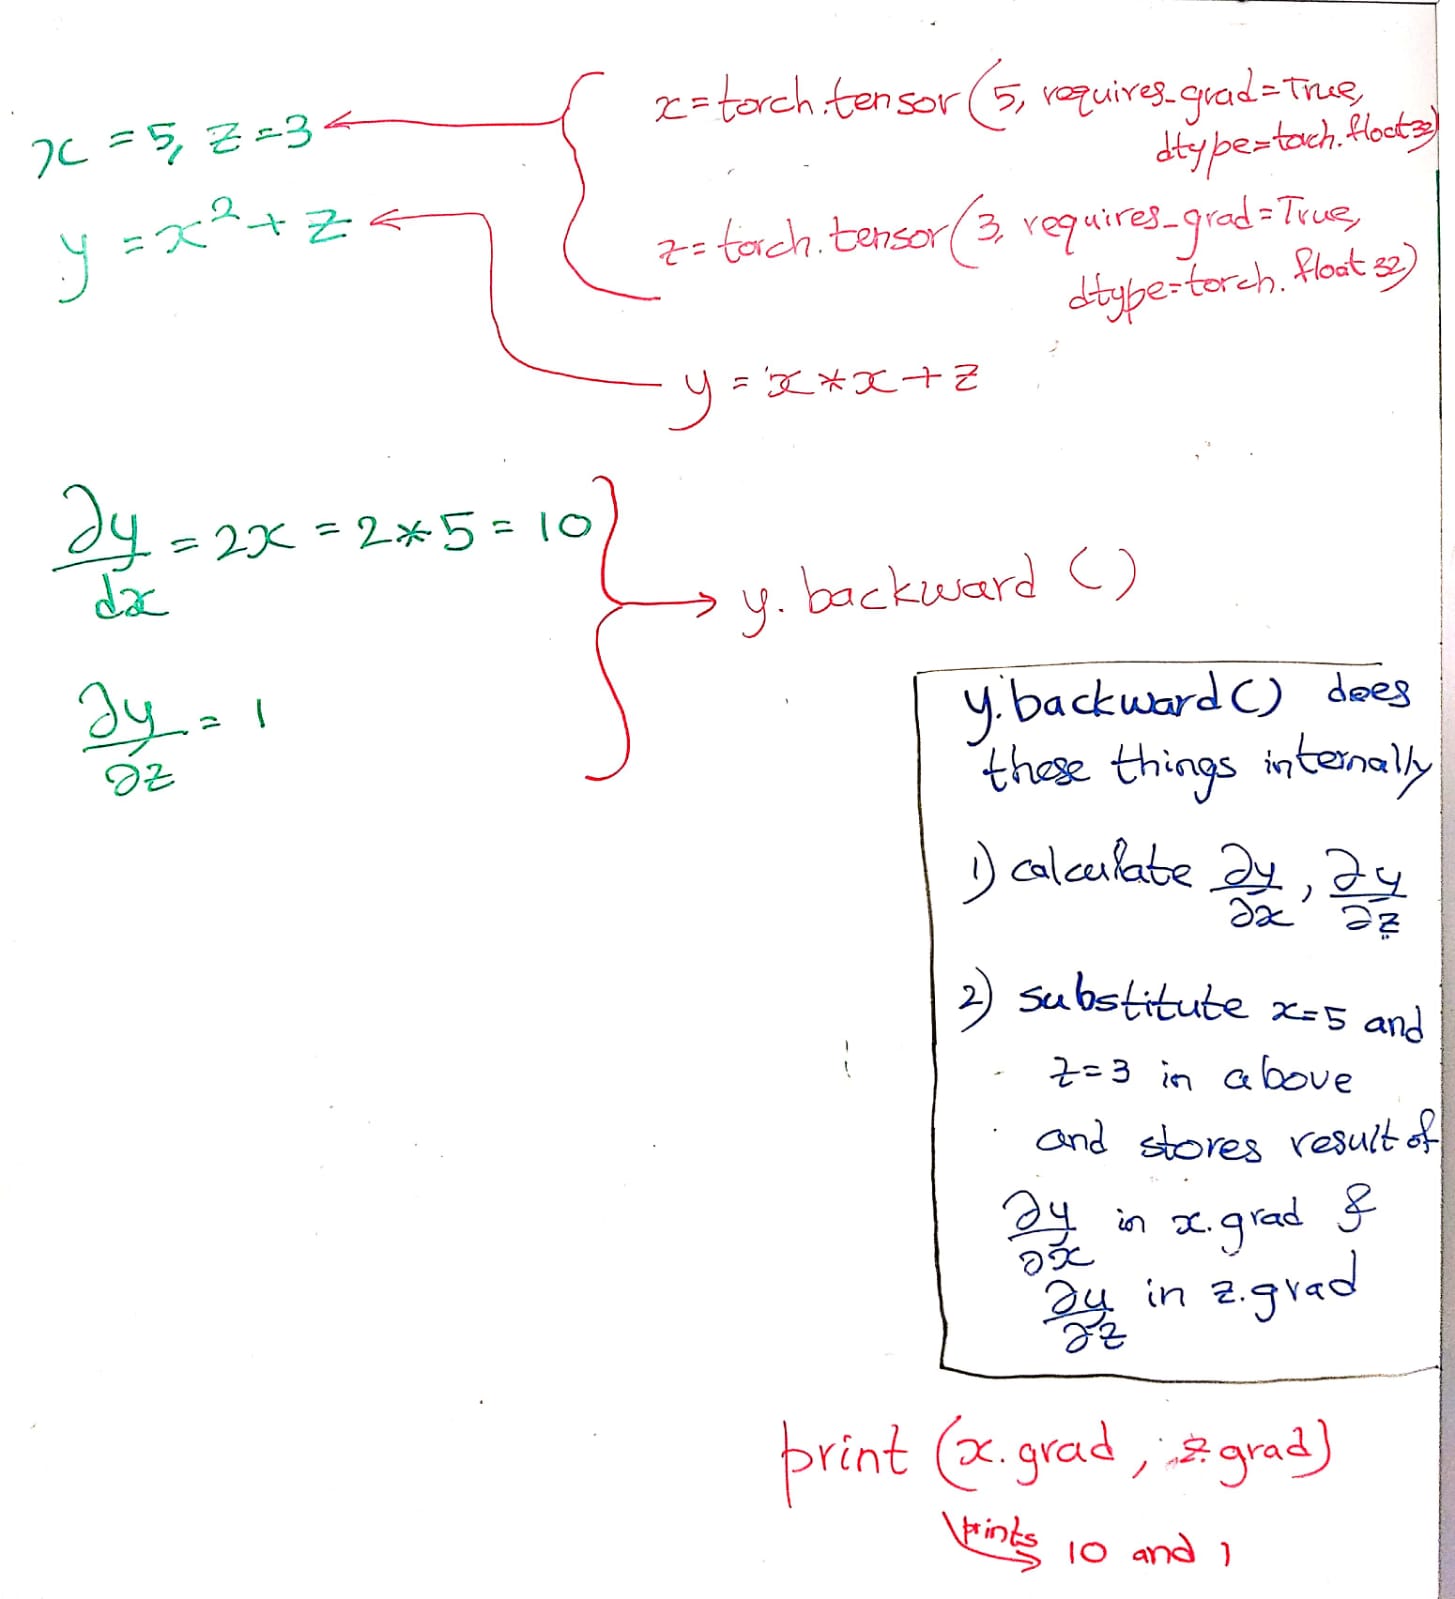 x = 5, z = 3
y = x² + z
x = torch.tensor (5, requires_grad = True,
dtype = torch.float32)
z = torch.tensor (3, requires_grad = True,
dtype = torch.float 32)
y = x * x + z
∂y/dx = 2x = 2 * 5 = 10
∂y/∂z = 1
y. backward ()
y. backward () does
these things internally
1) calculate ∂y/∂x , ∂y/∂z
2) substitute x = 5 and
z = 3 in above
and stores result of
∂y/∂x in x. grad &
∂y/∂z in z. grad
print (x. grad , z. grad)
prints 10 and 1